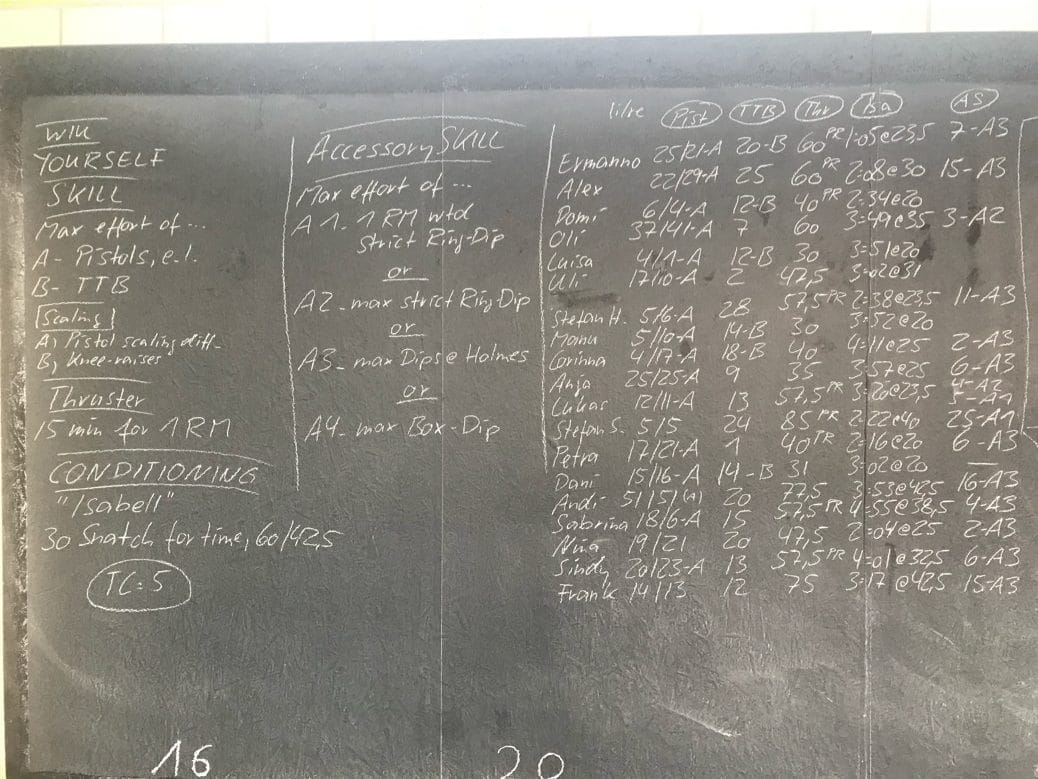 WIU
YOURSELF
SKILL
Max effort of ...
A - Pistols, e.l.
B - TTB
Scaling
A) Pistol scaling diff.
B) Knee-raises
Thruster
15 min for 1RM
CONDITIONING
"Isabell"
30 Snatch for time, 60/42,5
TC=5
Accessory SKILL
Max effort of ...
A1. 1RM wtd
strict Ring-Dip
or
A2 - max strict Ring-Dip
or
A3 - max Dips @ Holmes
or
A4 - max Box-Dip
li/re Pist TTB Thr Ba AS
Ermanno 25/21-A 20-B 60 PR 1:05@23,5 7-A3
Alex 22/29-A 25 60 PR 2:08@30 15-A3
Domi 6/4-A 12-B 40 PR 2:34@20
Oli 37/41-A 7 60 3:49@35 3-A2
Luisa 4/1-A 12-B 30 3:51@20
Uli 17/10-A 2 47,5 3:02@31
Stefan H. 5/6-A 28 57,5 PR 2:38@23,5 11-A3
Manu 5/10-A 14-B 30 3:52@20
Corinna 4/17-A 18-B 40 4:11@25 2-A3
Anja 25/25-A 9 35 3:57@25 6-A3
Lukas 12/11-A 13 57,5 PR @23,5
Stefan S. 5/5 24 85 PR 2:22@40 25-A1
Petra 17/21-A 1 40 PR 2:16@20 6-A3
Dani 15/16-A 14-B 31 3:02@20 —
Andi 51/51 20 77,5 3:53@42,5 16-A3
Sabrina 18/6-A 15 57,5 PR 4:55@38,5 4-A3
Nina 19/21 20 47,5 2:04@25 2-A3
Sindy 20/23-A 13 57,5 PR 4:01@32,5 6-A3
Frank 14/13 12 75 3:17@42,5 15-A3
16
20